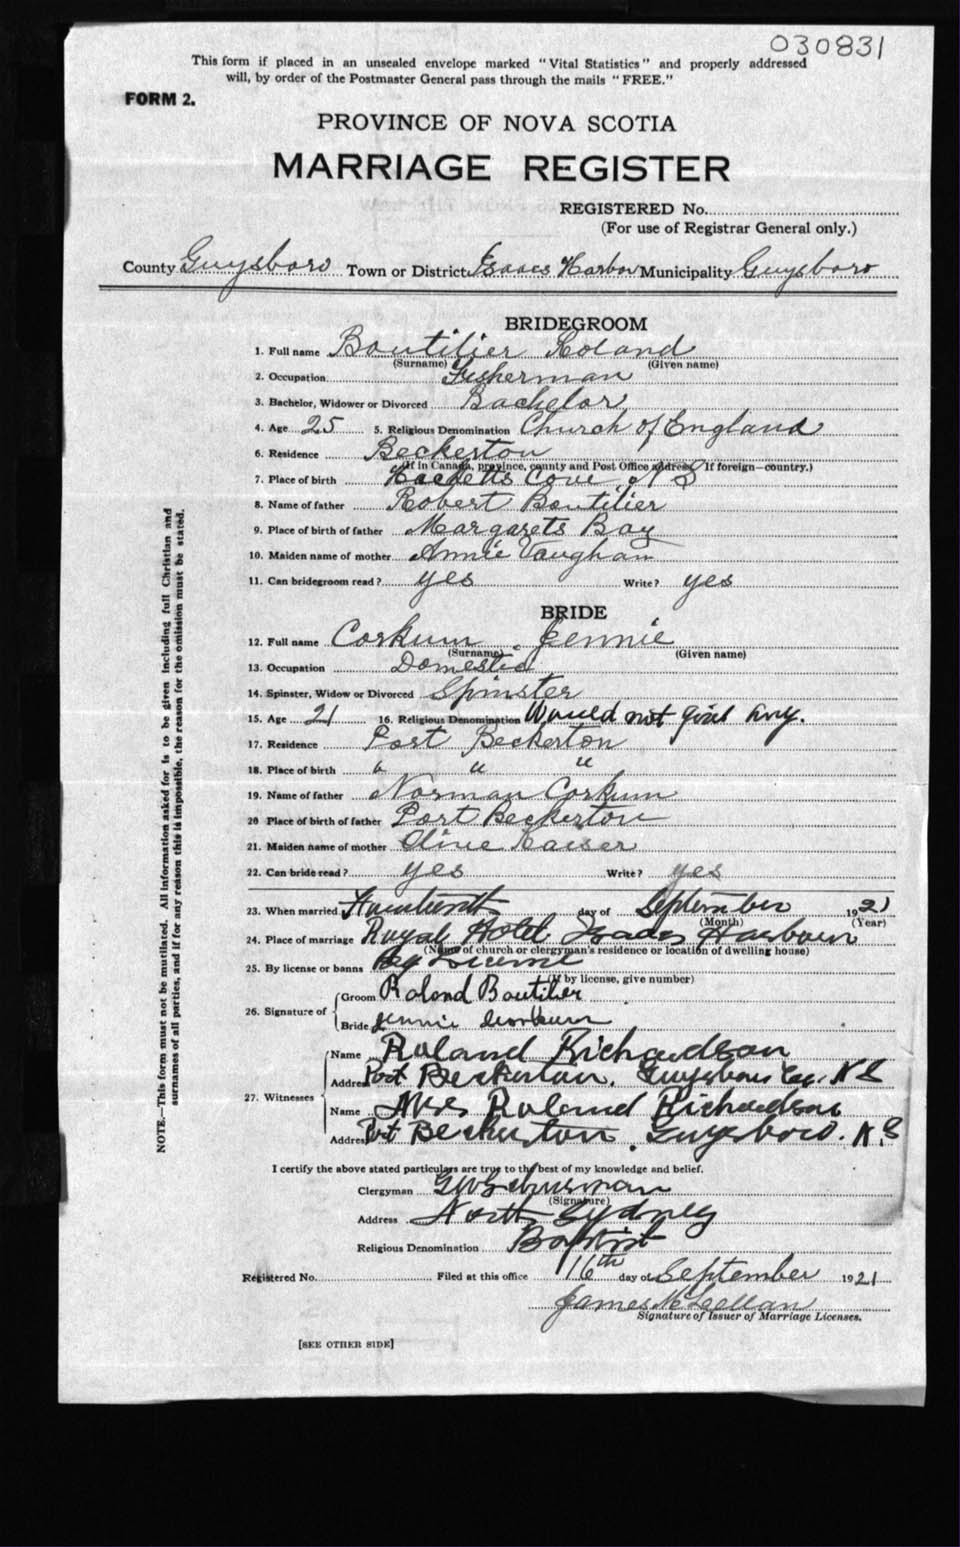 030831
This form if placed in an unsealed envelope marked "Vital Statistics" and properly addressed
will, by order of the Postmaster General pass through the mails "FREE."
FORM 2.
PROVINCE OF NOVA SCOTIA
MARRIAGE REGISTER
REGISTERED No.
(For use of Registrar General only.)
County Guysboro Town or District Isaacs Harbor Municipality Guysboro
BRIDEGROOM
1. Full name Boutilier Roland
(Surname) (Given name)
2. Occupation Fisherman
3. Bachelor, Widower or Divorced Bachelor
4. Age 25 5. Religious Denomination Church of England
6. Residence Beckerton
(If in Canada, province, county and Post Office address. If foreign—country.)
7. Place of birth Hacketts Cove, N S
8. Name of father Robert Boutilier
9. Place of birth of father Margarets Bay
10. Maiden name of mother Annie Vaughan
11. Can bridegroom read? yes Write? yes
BRIDE
12. Full name Corkum Jennie
(Surname) (Given name)
13. Occupation Domestic
14. Spinster, Widow or Divorced Spinster
15. Age 21 16. Religious Denomination Would not give any.
17. Residence Port Beckerton
18. Place of birth " " "
19. Name of father Norman Corkum
20 Place of birth of father Port Beckerton
21. Maiden name of mother Olive Kaiser
22. Can bride read? yes Write? yes
23. When married day of September 1921
(Month) (Year)
24. Place of marriage Royal Hotel Isaacs Harbour
(Name of church or clergyman's residence or location of dwelling house)
25. By license or banns By License
(If by license, give number)
26. Signature of Groom Roland Boutilier
Bride Jennie Corkum
27. Witnesses
Name Roland Richardson
Address Port Beckerton, Guysboro Co. N S
Name Mrs Roland Richardson
Address Port Beckerton, Guysboro. N.S
I certify the above stated particulars are true to the best of my knowledge and belief.
Clergyman
(Signature)
Address North Sydney
Religious Denomination Baptist
Registered No. Filed at this office 16th day of September 1921
James McLellan
Signature of Issuer of Marriage Licenses.
[SEE OTHER SIDE]
NOTE.—This form must not be mutilated. All information asked for is to be given including full Christian and
surnames of all parties, and if for any reason this is impossible, the reason for the omission must be stated.